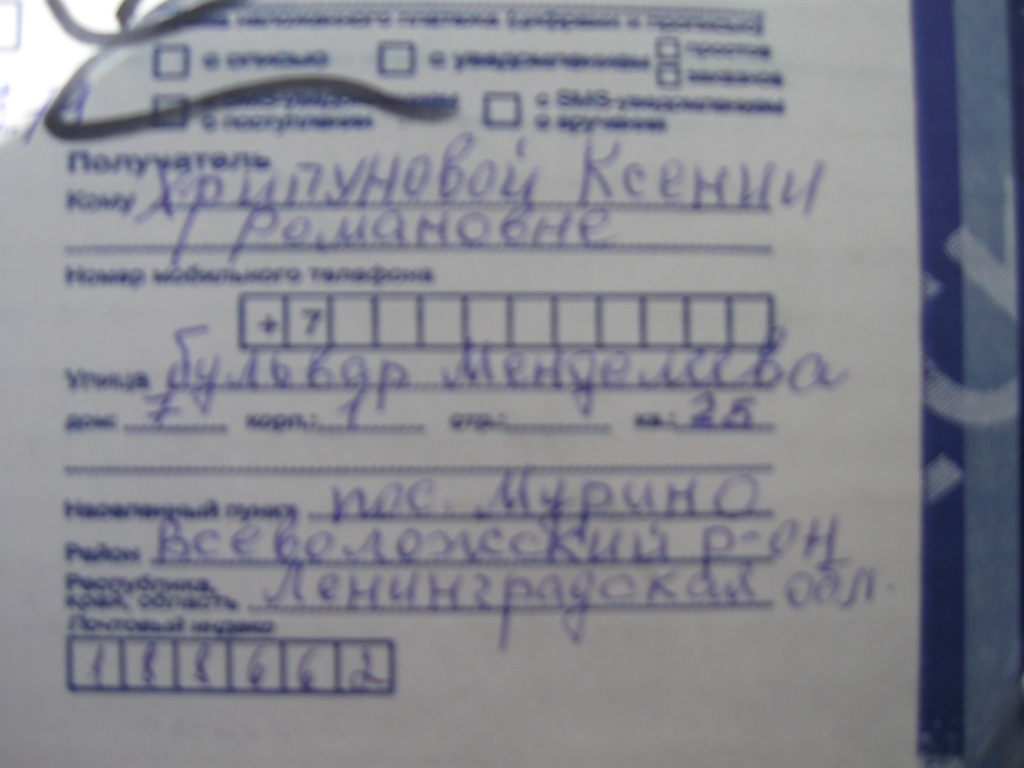 ма наложенного платежа (цифрами и прописью)
с описью с уведомлением простое
заказное
с SMS-уведомлением с SMS-уведомлением
о поступлении о вручении
Получатель
Кому Хрипуновой Ксении
Романовне
Номер мобильного телефона
+ 7
Улица бульвар Менделеева
дом: 7 корп.: 1 стр.: кв.: 25
Населенный пункт пос. Мурино
Район Всеволожский р-он
Республика,
край, область Ленинградская обл.
Почтовый индекс
188662